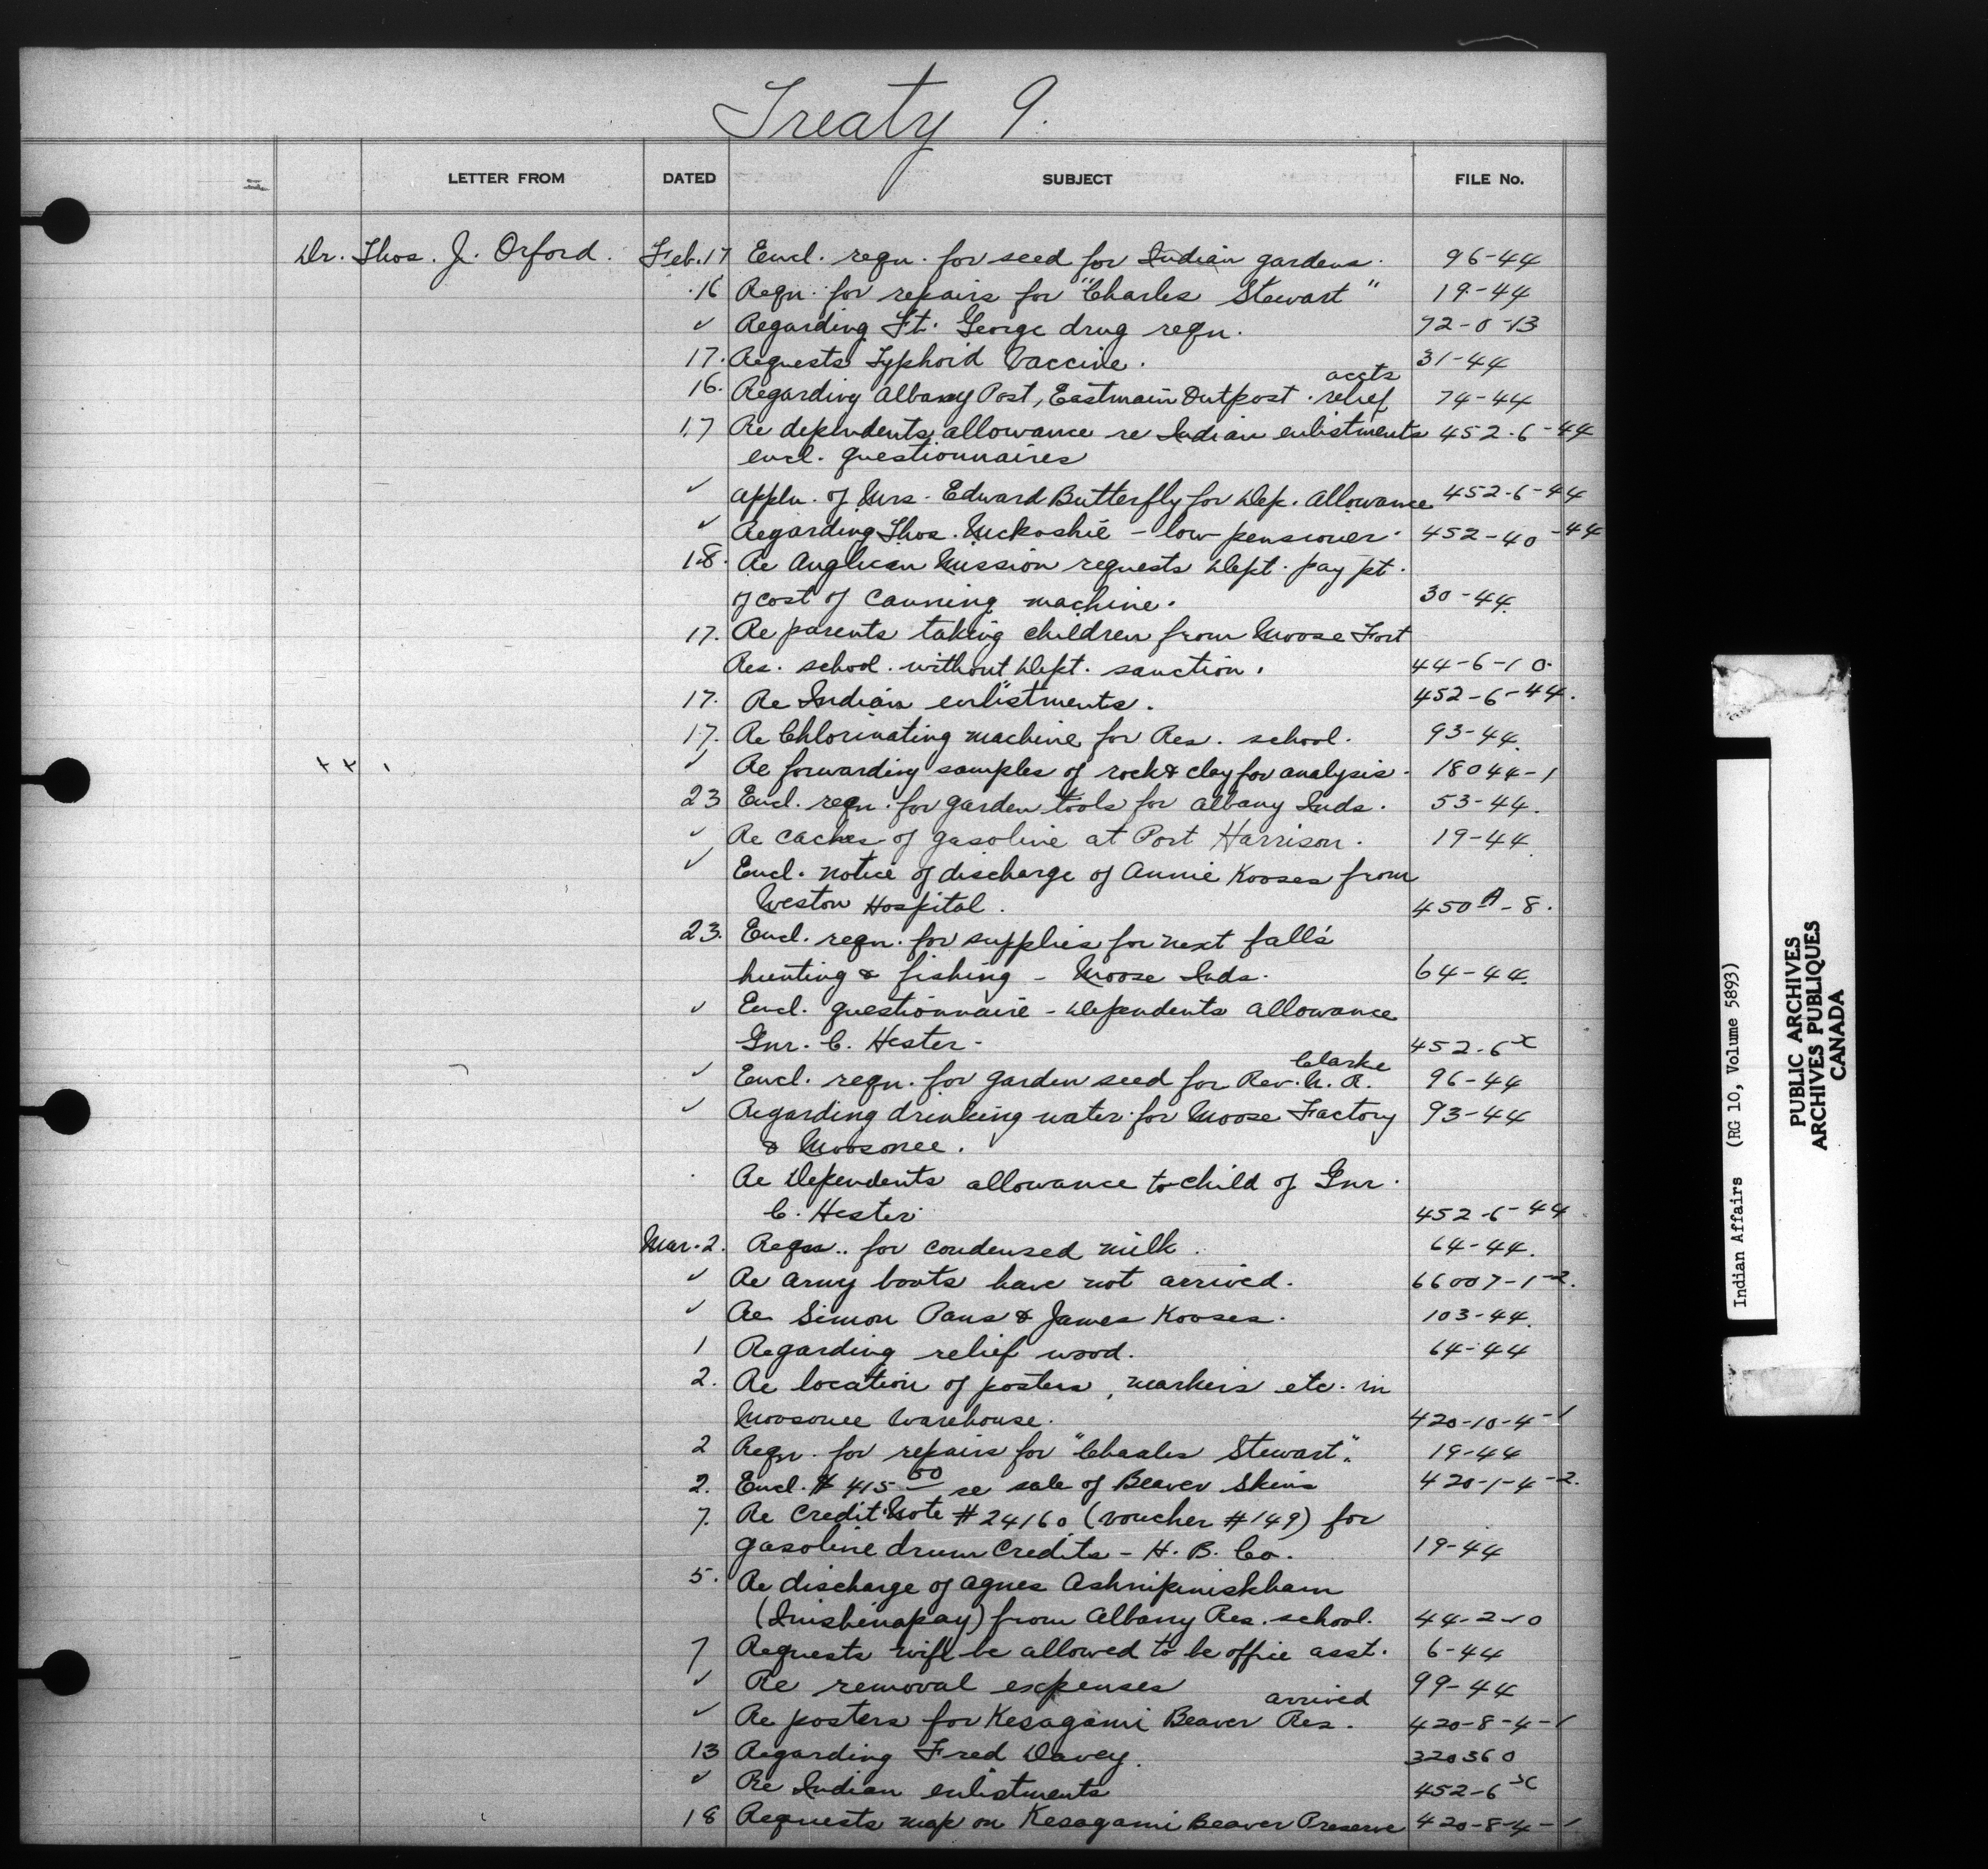 Treaty 9.
LETTER FROM DATED SUBJECT FILE No.
Dr. Thos. J. Orford. Feb. 17 Encl. reqn. for seed for Indian gardens. 96-44
16 Reqn. for repairs for "Charles Stewart" 19-44
✓ Regarding Ft. George drug reqn. 72-0-13
17. Requests Typhoid Vaccine. 31-44
accts
16. Regarding Albany Post, Eastmain Outpost relief 74-44
17 Re dependents allowance re Indian enlistments 452-6-44
encl. questionnaires
✓ Appln. of Mrs. Edward Butterfly for Dep. Allowance 452-6-44
✓ Regarding Thos. - low pensioner. 452-40-44
18. Re Anglican Mission requests Dept. pay pt.
of cost of canning machine. 30-44.
17. Re parents taking children from Moose Fort
Res. school without Dept. sanction. 44-6-10.
17. Re Indian enlistments. 452-6-44.
17. Re Chlorinating machine for Res. school. 93-44.
✓ Re forwarding samples of rock & clay for analysis. 18044-1
23 Encl. reqn. for garden tools for Albany Inds. 53-44.
✓ Re caches of gasoline at Port Harrison. 19-44.
✓ Encl. notice of discharge of Annie Kooses from
Weston Hospital. 450A-8.
23. Encl. reqn. for supplies for next fall's
hunting & fishing - Moose Inds. 64-44.
✓ Encl. questionnaire - Dependents Allowance
Gnr. C. Hester- 452-6x
Clarke
✓ Encl. reqn. for garden seed for Rev. R. 96-44
✓ Regarding drinking water for Moose Factory 93-44
& Moosonee.
Re Dependents allowance to child of Gnr.
C. Hester 452-6-44
Mar. 2. Reqn. for condensed milk. 64-44.
✓ Re army boots have not arrived. 66007-1-2.
✓ Re Simon Paus & James Kooses. 103-44.
1 Regarding relief wood. 64-44
2. Re location of posters, markers etc. in
Moosonee Warehouse. 420-10-4-1
2 Reqn. for repairs for "Charles Stewart". 19-44
2. Encl. $415 50 re sale of Beaver Skins 420-1-4-2.
7. Re Credit Note #24160 (voucher #149) for
gasoline drum Credits - H. B. Co. 19-44
5. Re discharge of Agnes
from Albany Res. school. 44-2-10
7 Requests wife be allowed to be office asst. 6-44
✓ Re removal expenses 99-44
arrived
✓ Re posters for Kesagami Beaver Res. 420-8-4-1
13 Regarding Fred Davey. 320360
✓ Re Indian enlistments 452-6x
18 Requests map on Kesagami Beaver Preserve 420-8-4-1
Indian Affairs (RG 10, Volume 5893)
PUBLIC ARCHIVES
ARCHIVES PUBLIQUES
CANADA